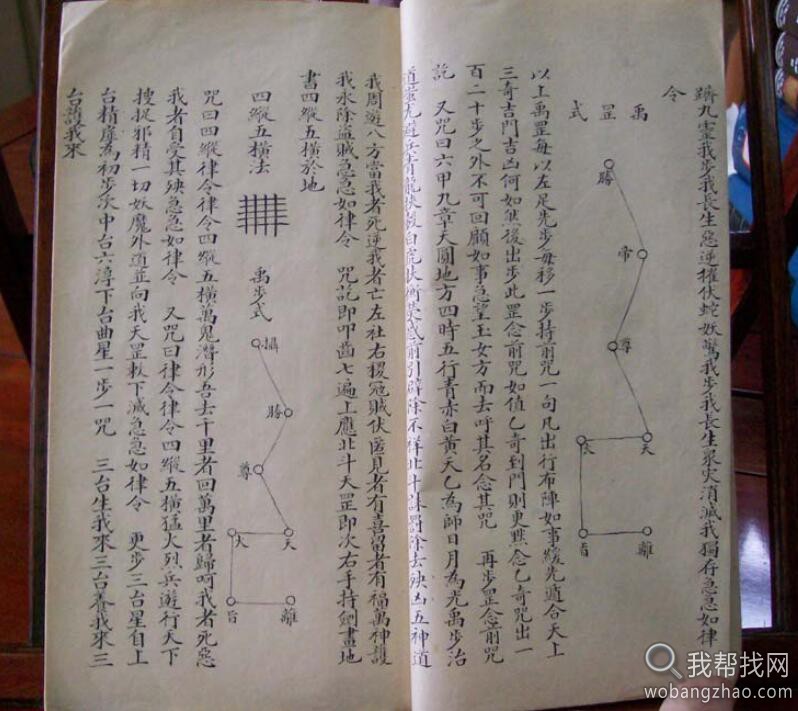 躋九靈我步我長生惡逆摧伏蛇妖驚我步我長生眾灾消滅我獨存急急如律
令
禹罡式
勝
帝
尊
天
太
旨
離
以上禹罡每以左足先步每移一步持前咒一句凡出行布陣如事緩先適合天上
三奇吉門吉凶何如然後出步此罡念前咒如值乙奇到門則更黙念乙奇咒出一
百二十步之外不可回顧如事急望玉女方而去呼其名念其咒 再步罡念前咒
訖 又咒曰六甲九章天圓地方四時五行青赤白黃天乙為師日月為光禹步治
道蚩尤避兵青龍挾轂白虎扶衡熒惑前引辟除不祥北斗誅罰除去殃凶五神道
我周遊八方當我者死逆我者亡左社右稷冦賊伏匿見者有喜留者有福萬神護
我永除盜賊急急如律令 咒訖即叩齒七遍上應北斗天罡即次右手持劍畫地
書四縱五橫於地
四縱五橫法
禹步式
攝
勝
尊
天
太
旨
離
咒曰四縱律令律令四縱五橫萬鬼潛形吾去千里者回萬里者歸呵我者死惡
我者自受其殃急急如律令 又咒曰律令律令四縱五橫猛火烈兵遊行天下
搜捉邪精一切妖魔外道並向我天罡敕下滅急急如律令 更步三台星自上
台精虛為初步次中台六淳下台曲星一步一咒 三台生我來三台養我來三
台護我來
我帮找网
wobangzhao.com